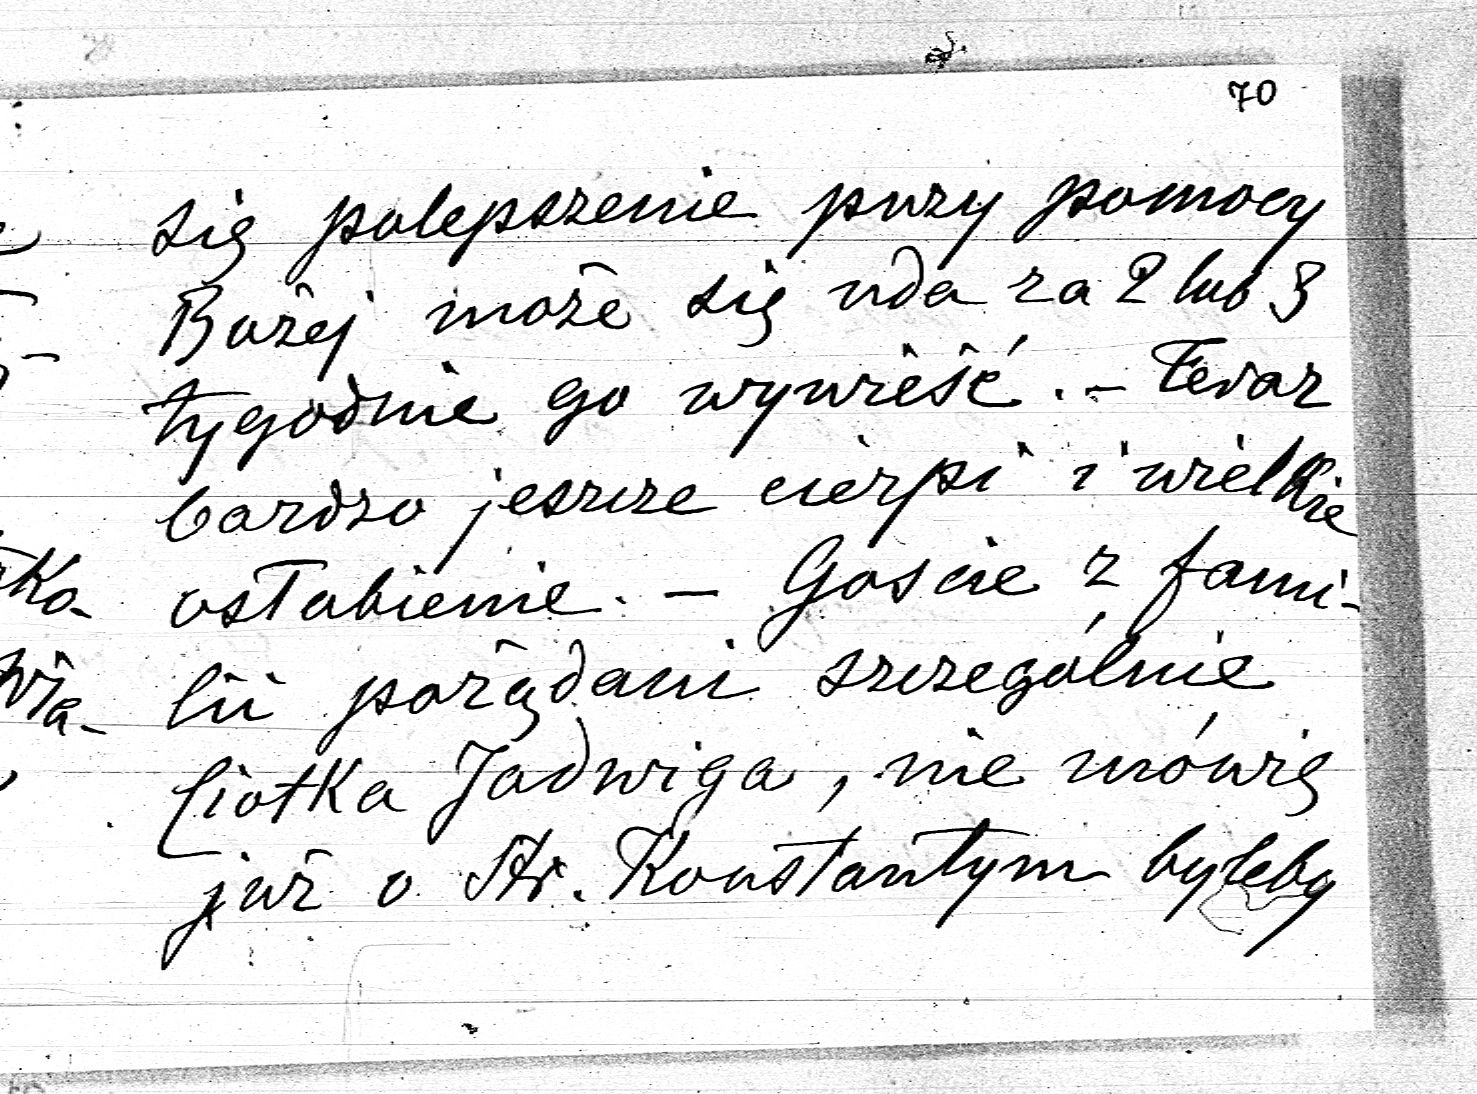 70
się polepszenie przy pomocy
Bożej może się uda za 2 lub 3
tygodnie go wywieść. – Teraz
bardzo jeszcze cierpi i wielkie
osłabienie. – Goście z fami-
lii pożądani szczególnie
Ciotka Jadwiga, nie mówię
już o Str. Konstantym byleby